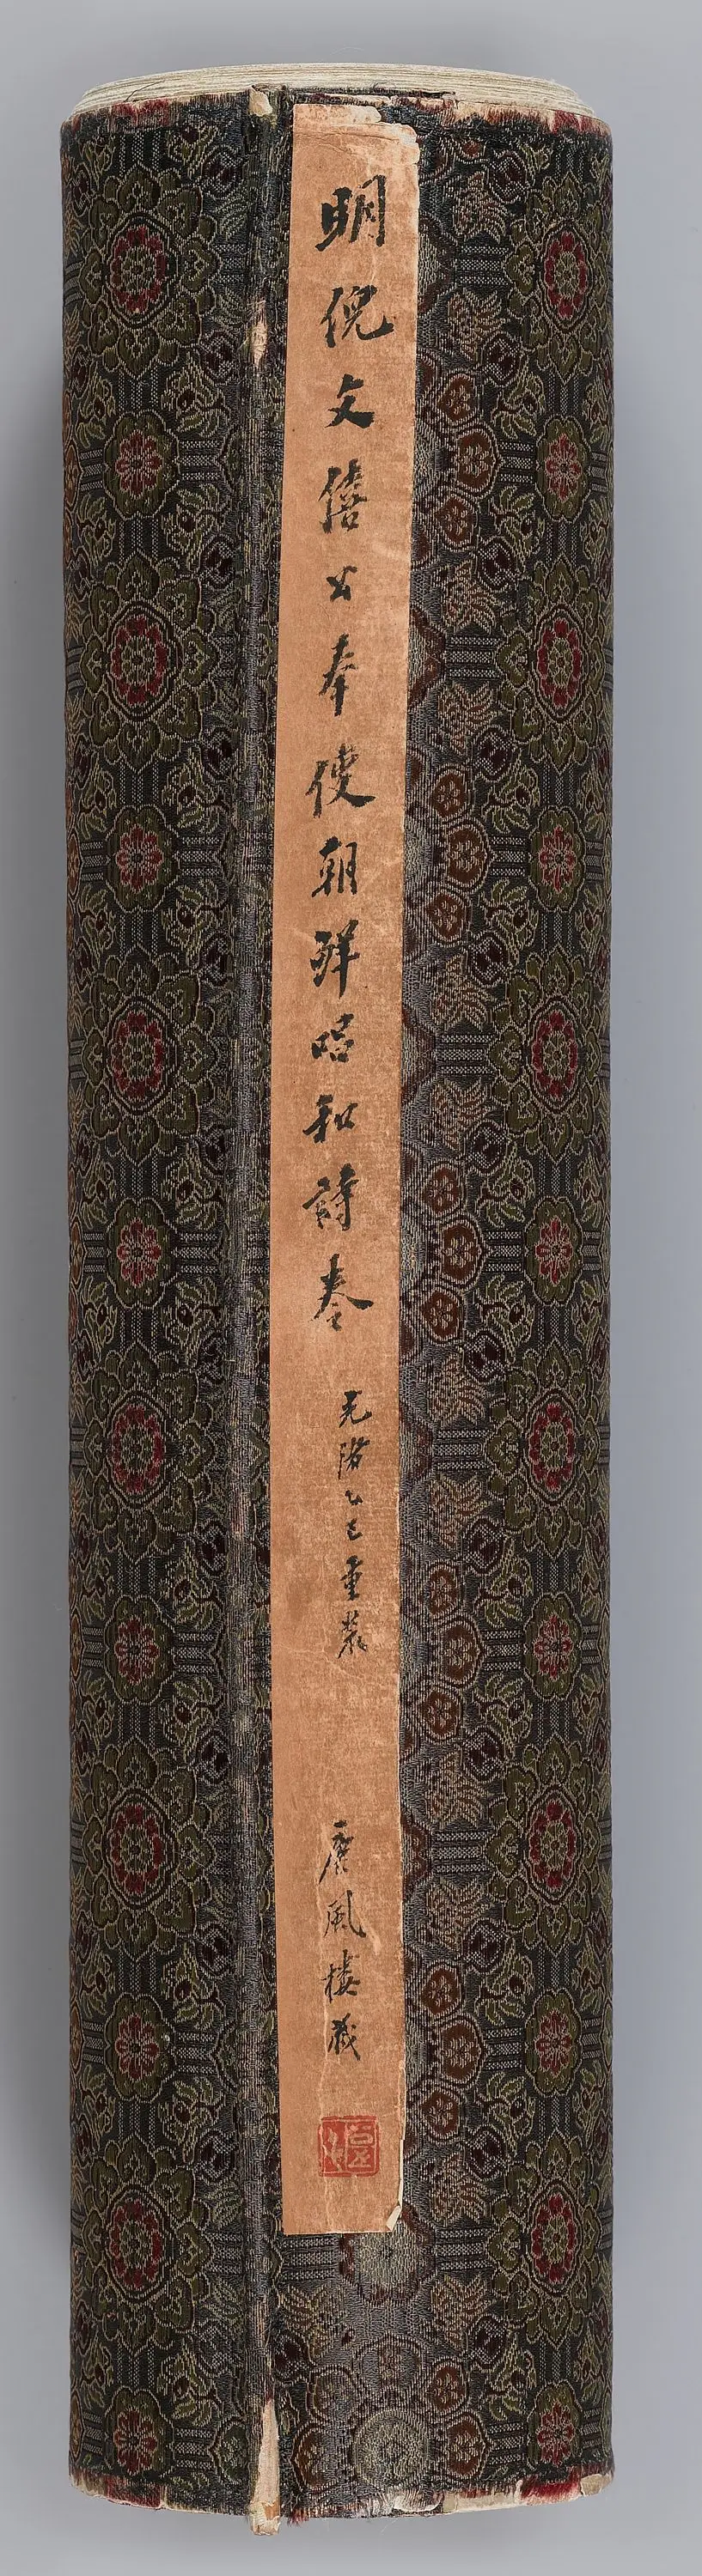 明倪文僖公奉使朝鮮唱和詩卷
光緒乙巳重裝
唐風樓藏